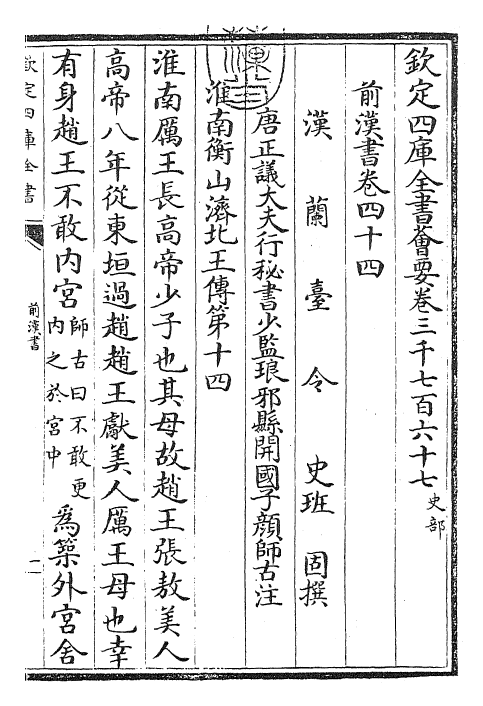 欽定四庫全書薈要卷三千七百六十七史部
前漢書卷四十四
漢蘭臺令史班固撰
唐正議大夫行秘書少監琅邪縣開國子顏師古注
淮南衡山濟北王傳第十四
淮南厲王長高帝少子也其母故趙王張敖美人
高帝八年從東垣過趙趙王獻美人厲王母也幸
有身趙王不敢内宮師古曰不敢更内之於宮中為築外宮舍
欽定四庫全書
前漢書
一